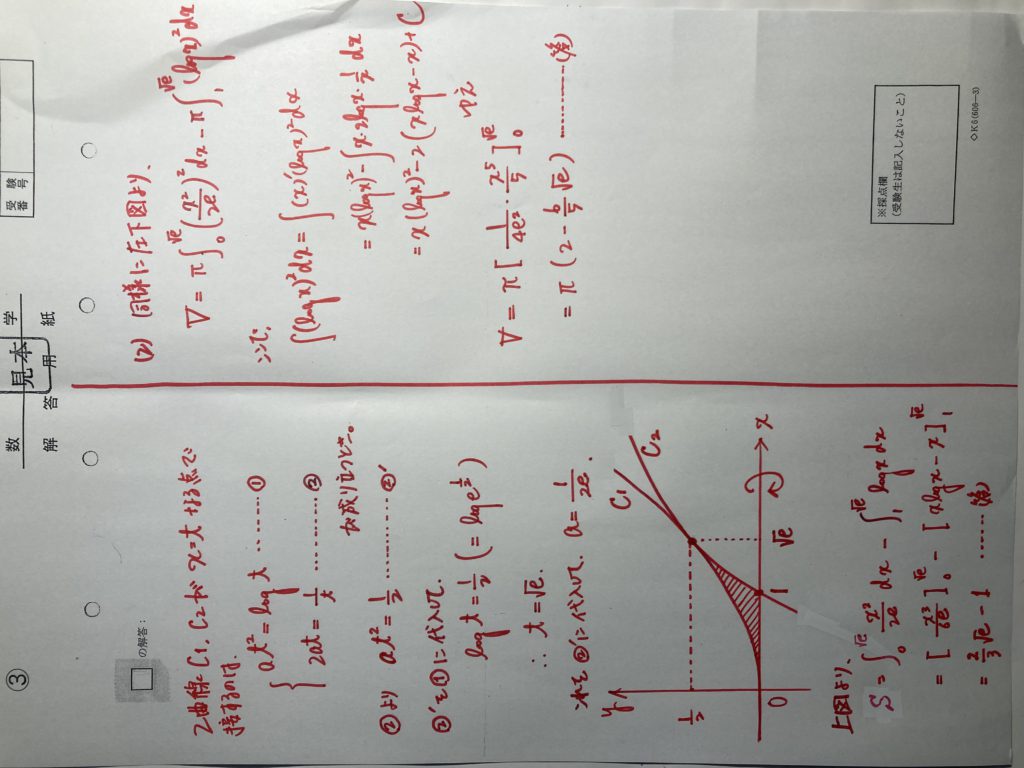 ③
数学
見本
解答用紙
受験番号
□の解答:
2曲線C1, C2がx=tなる点で
接するのは、
{ at² = log t ………①
2at = 1/t …………②
が成り立つとき。
②より at² = 1/2 ………②'
②'を①に代入して、
log t = 1/2 (= log e^{1/2})
∴ t = √e.
これを②'に代入して、a = 1/2e.
y
C1
C2
1/2
0
1
√e
x
上図より、
S = ∫₀^{√e} x²/2e dx − ∫₁^{√e} log x dx
= [x³/6e]₀^{√e} − [x log x − x]₁^{√e}
= 2/3 √e − 1 ………(答)
(2) 同様に左下図より、
V = π∫₀^{√e} (x²/2e)² dx − π∫₁^{√e} (log x)² dx
ここで、
∫(log x)² dx = ∫(x)'(log x)² dx
= x(log x)² − ∫x·2log x·1/x dx
= x(log x)² − 2(x log x − x) + C
ゆえ
V = π[1/4e² · x⁵/5]₀^{√e}
= π(2 − 6/5 √e) ………(答)
※採点欄
(受験生は記入しないこと)
◇K6(606—3)